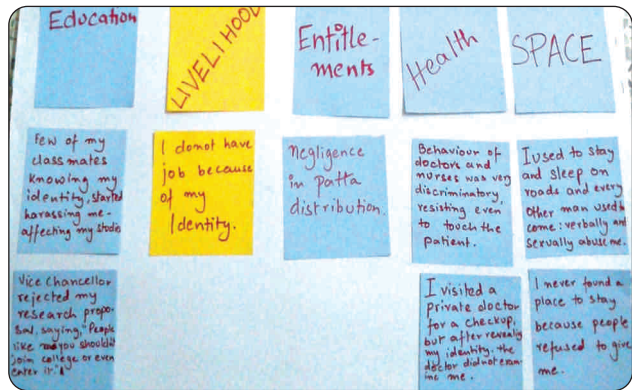 Education
LIVELIHOOD
Entitle-
ments
Health
SPACE
Few of my
class mates
knowing my
identity, started
harassing me-
affecting my studies
I donot have
job because
of my
Identity.
Negligence
in Patta
distribution.
Behaviour of
doctors and
nurses was very
discriminatory,
resisting even
to touch the
patient.
I used to stay
and sleep on
roads and every
other man used to
come: verbally and
sexually abuse me.
Vice Chancellor
rejected my
research propo-
sal, saying, "People
like you shouldn't
join college or even
enter it."
I visited a
private doctor
for a checkup,
but after revealing
my identity. the
doctor did not exam-
ine me.
I never found a
place to stay
because people
refused to give
me.